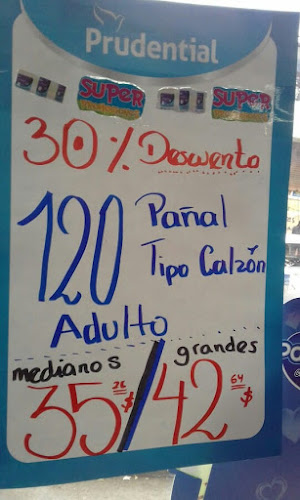 Prudential
SUPER SUPER
30% Descuento
120 Pañal
Tipo Calzón
Adulto
medianos / grandes
35 26 $ / 42 64 $